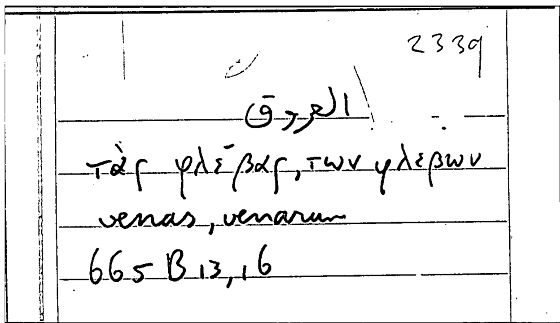 2339
العروق
τὰς φλέβας, των φλεβων
venas, venarum
665 B 13, 16